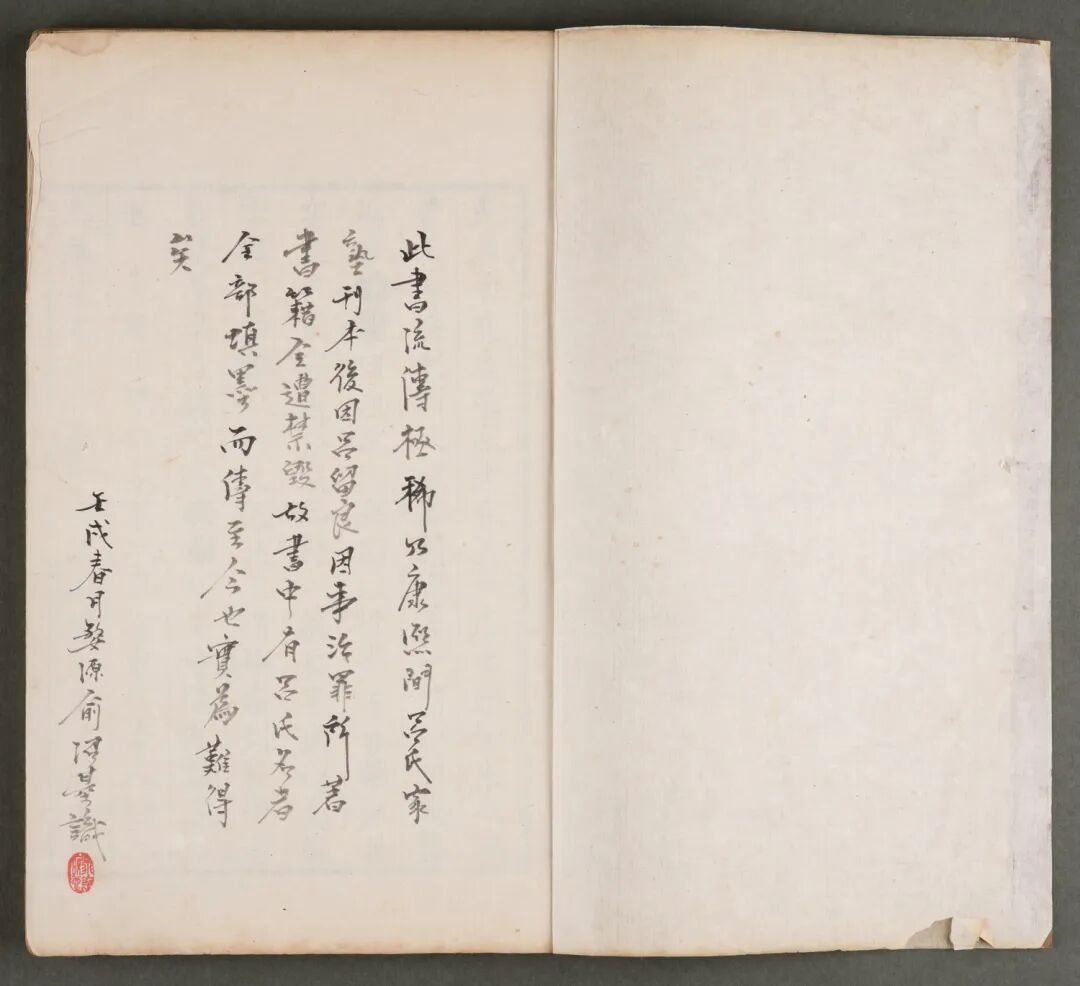 此書流傳極稀乃康熙間呂氏家
塾刊本後因呂留良因事治罪所著
書籍全遭禁毀故書中有呂氏名者
全部填墨而傳至今也實為難得
矣
壬戌春月婺源俞 基識